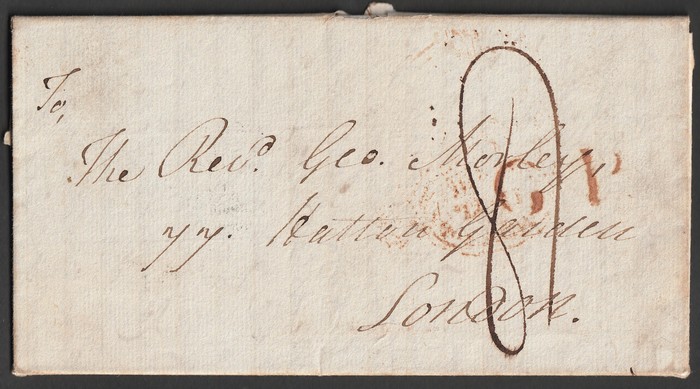 To,
The Revd. Geo. Morley,
77. Hatton Garden
London.